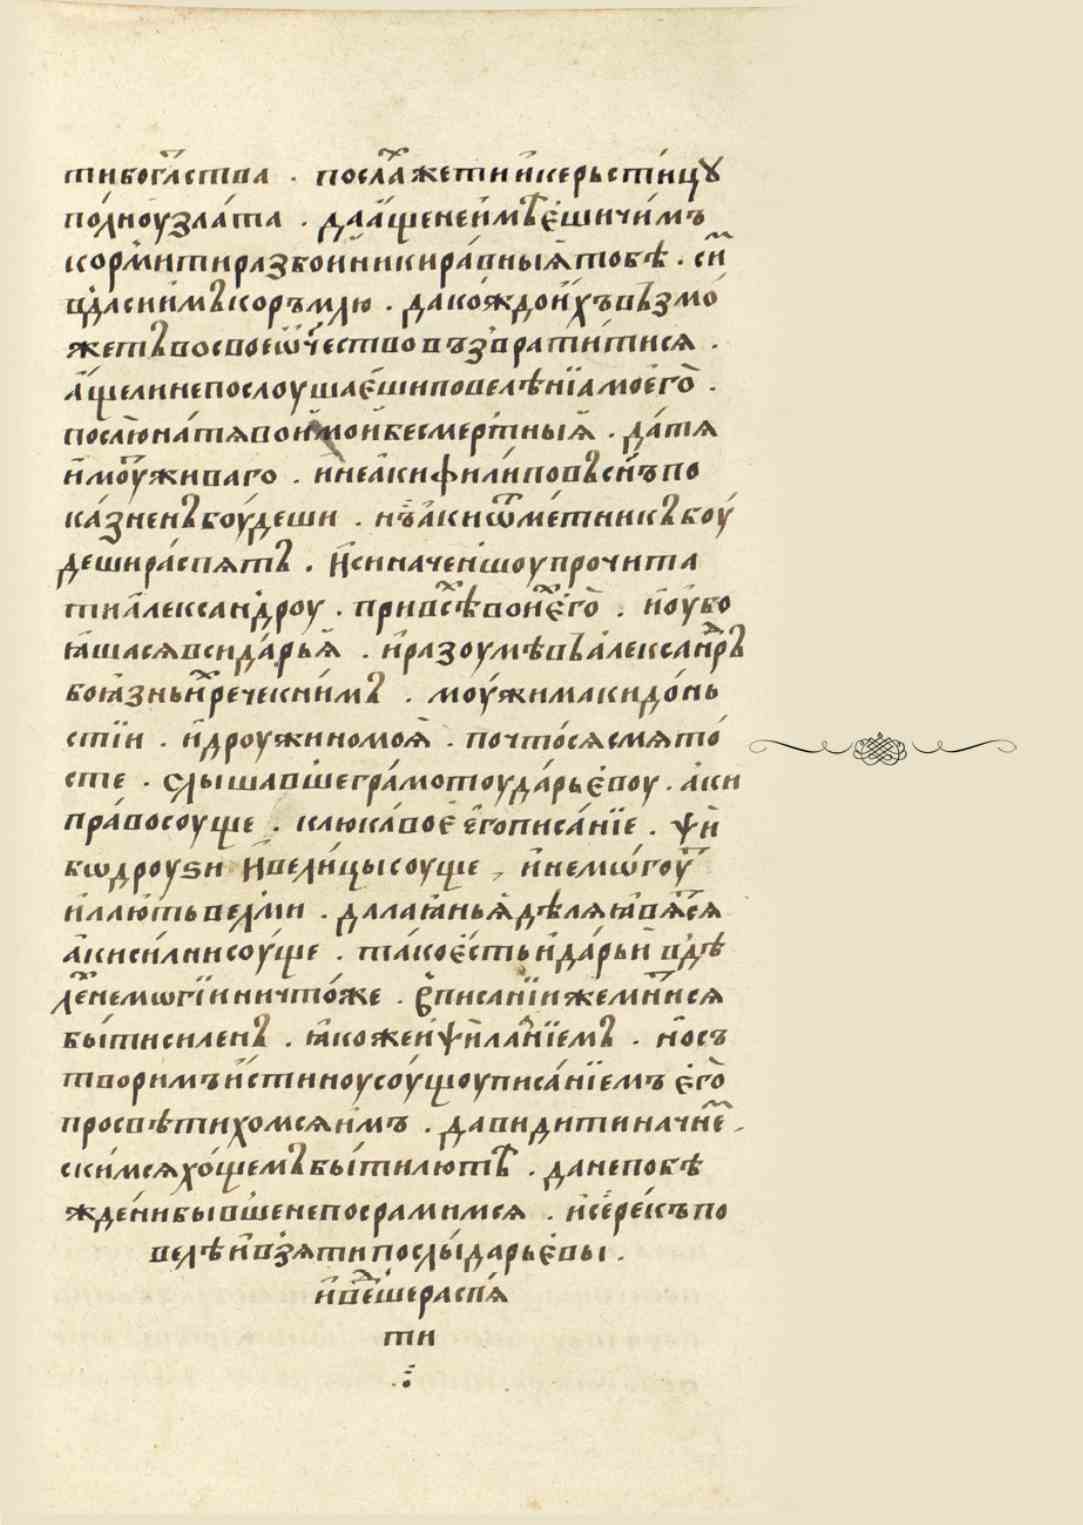 ти бога҇ства . посла́хже ти и҆ керьсти́цꙋ
по́лноу зла́та . да а҆́ще не и҆мѣ́еши чи́мъ
корми́ти разбойники ра́вныѧ҆ тобѣ . си҇
ѡда си́мъ корьмлю . да ко́ждо и҆́хъ възмо́
жетъ во свое ѿче́ство възврати́тисѧ .
а҆́ще ли не послоуша́еши повелѣ́нїа моего̀ .
послю̀ на́ тѧ вои̑ мои̑ бесме́ртныѧ҆ . да́ тѧ
и҆моу҇ жива́го . и҆ не а҆́ки фили́повъ сн҃ъ по
ка́зненъ бу́деши . нъ҆ а҆́ки ѿме́тникъ боу́
деши ра́спѧтъ . И҆ си наченшоу прочита
ти а҆лекса́ндроу . при всѣ́х вои҆х е҆го̀ . и҆ оу҆бо
ꙗ҆́шасѧ вси да́рьѧ҆ . и҆ разоумѣ́въ а҆лекса́ндръ
боꙗ҆́знь и҆х рече к ни́мъ . моу́жи макидо́нь
стїи . и҆ дроужи́но моѧ̀ . почто́ сѧ смѧто́
сте . слы́шавше гра́мотоу да́рьевоу . а҆́ки
пра́во соуще . клюка́во е҆ е҆го̀ писа́нїе . ѱи̑
бѡ дроуѕи И҆ вели́цы соуще , и҆ не мѡ́гоу҇
и҆ ла́ють вельми . да лаꙗ҆нь́ѧ дѣлѧ ꙗ҆вѧ҇сѧ
а҆́ки си́лни соу́ще . та́ко е҆́сть и҆ да́рьи҆ в дѣ́
ле҇х не мѡгїи ничто́же . в писа́нїи же мни҇сѧ
бы́ти силенъ . ꙗ҆́коже и҆ ѱи̑ ла́нїемъ . но съ
твори́мъ и҆́стинноу соу́щоу писа́нїемъ е҆го̀
просвѣти́хомсѧ и҆мъ . да видити на чне҇
ски́мсѧ хо́щемъ бы́ти лютѣ . да не побѣ
жде́ни бы́вше не посрами́мсѧ . и҆ се́ реікъ по
велѣ̀ и҆взѧ́ти послы́ да́рьевы .
и҆ ве҇дше распѧ́
ти